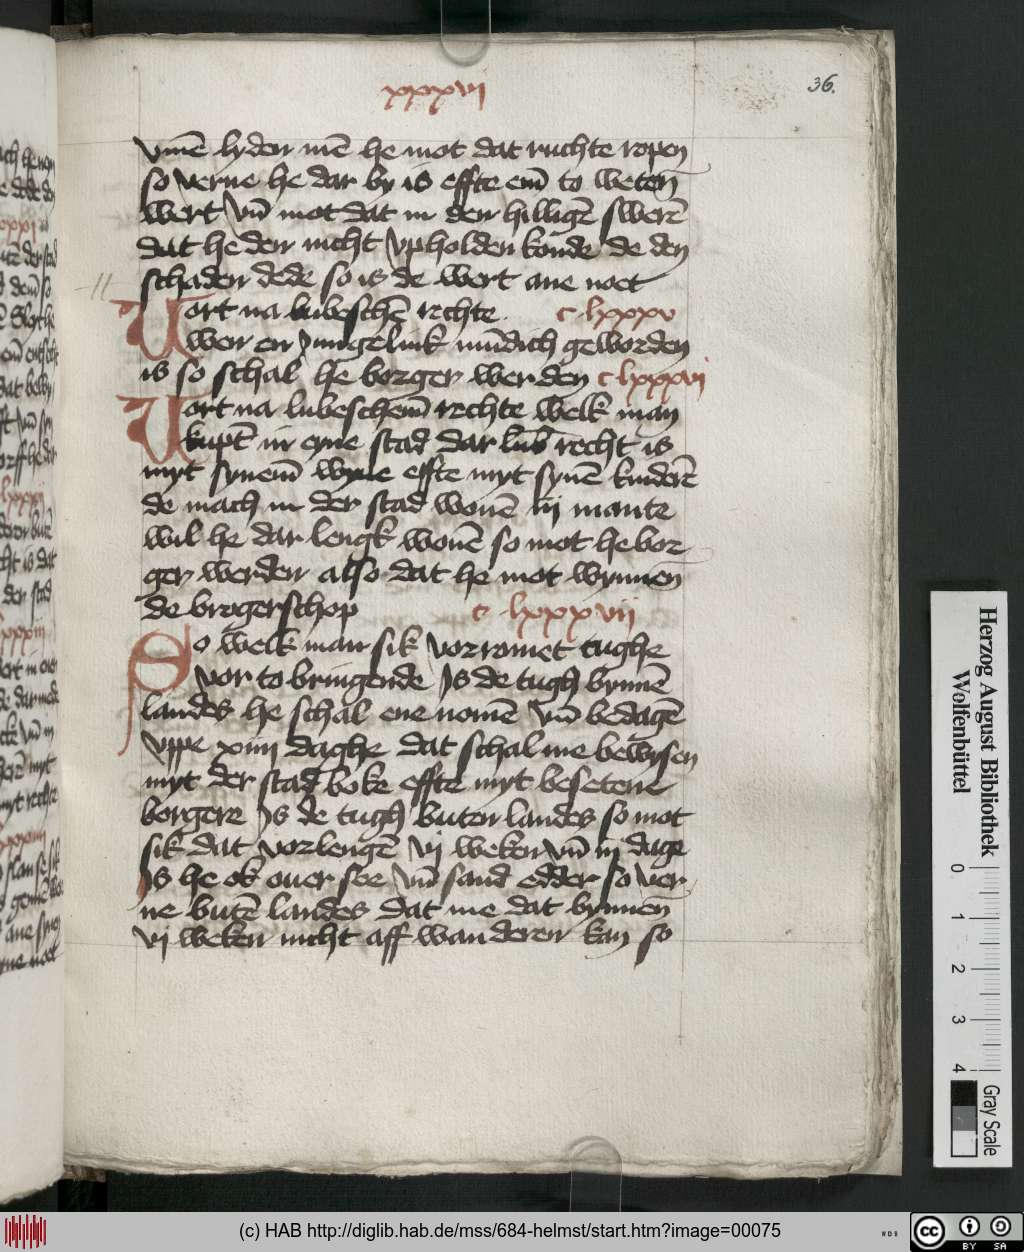 xxxvi
36.
vmē lyden mē he mot dat ruchte ropen
so verne he dar by is effte em̄ to weten
wert vn̄ mot dat in den hilligē swerē
dat he den nicht vpholden konde de den
schaden dede so is de wert ane noet
Vort na lubeschē rechte c lxxxv
wen en Jungelink mūdich geworden
is so schal he borger werden c lxxxvi
Vort na lubeschem̄ rechte welk man
kupt in eyne stad dar lub recht is
myt synem̄ wyue effte myt synē kinderē
de mach in der stad wonē iij mante
wil he dar lengk wonē so mot he bor
ger werden also dat he mot wynnen
de brogerschop c lxxxvii
So welk man sik vorromet tughe
vor to bringende Js de tugh bynnē
landes he schal ene nomē vn̄ bedagē
vppe xiiii daghe dat schal me bewysen
myt der stad boke effte myt besetene
borgere Js de tugh buten landes so mot
sik dat vorlengē vj weken vn̄ iij dage
Js he ok ouer see vn̄ sand edder so ver
ne butē landes dat me dat bynnen
vj weken nicht aff wanderen kan so
Herzog August Bibliothek
Wolfenbüttel
0 1 2 3 4
Gray Scale
(c) HAB http://diglib.hab.de/mss/684-helmst/start.htm?image=00075
WDB
cc BY SA